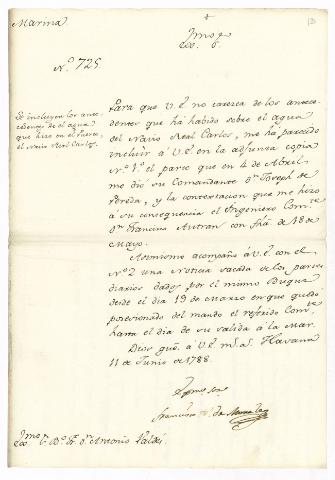 Marina
Exmo. Sr.
Nº. 725.
Se incluyen los antecedentes de el agua que hizo en el Puerto, el Navio Real Carlos.
Para que V.E. no carezca de los antece-
dentes que há habido sobre el agua
del Navio Real Carlos, me há parecido
incluir á V.E. en la adjunta copia
Nº. 1º. el parte que en 4 de Abril
me dió su Comandante Dn. Joseph de
Pereda, y la contextacion que me hizo
á su consequencia el Ingeniero Comte.
Dn. Francisco Autran con fhâ de 18 de
Mayo.
Asimismo acompaño á V.E. con el
Nº. 2 una Noticia sacada de los partes
diarios dados, por el mismo Buque
desde el dia 19 de Marzo en que quedó
posesionado del mando el referido Comte.
hasta el dia de su salida á la Mar.
Dios gue. á V.E. ms. as. Havana
11 de Junio de 1788.
Exmo. Sor.
Francisco
Exmo. Sr. Bo. Fr. Dn. Antonio Valdés.